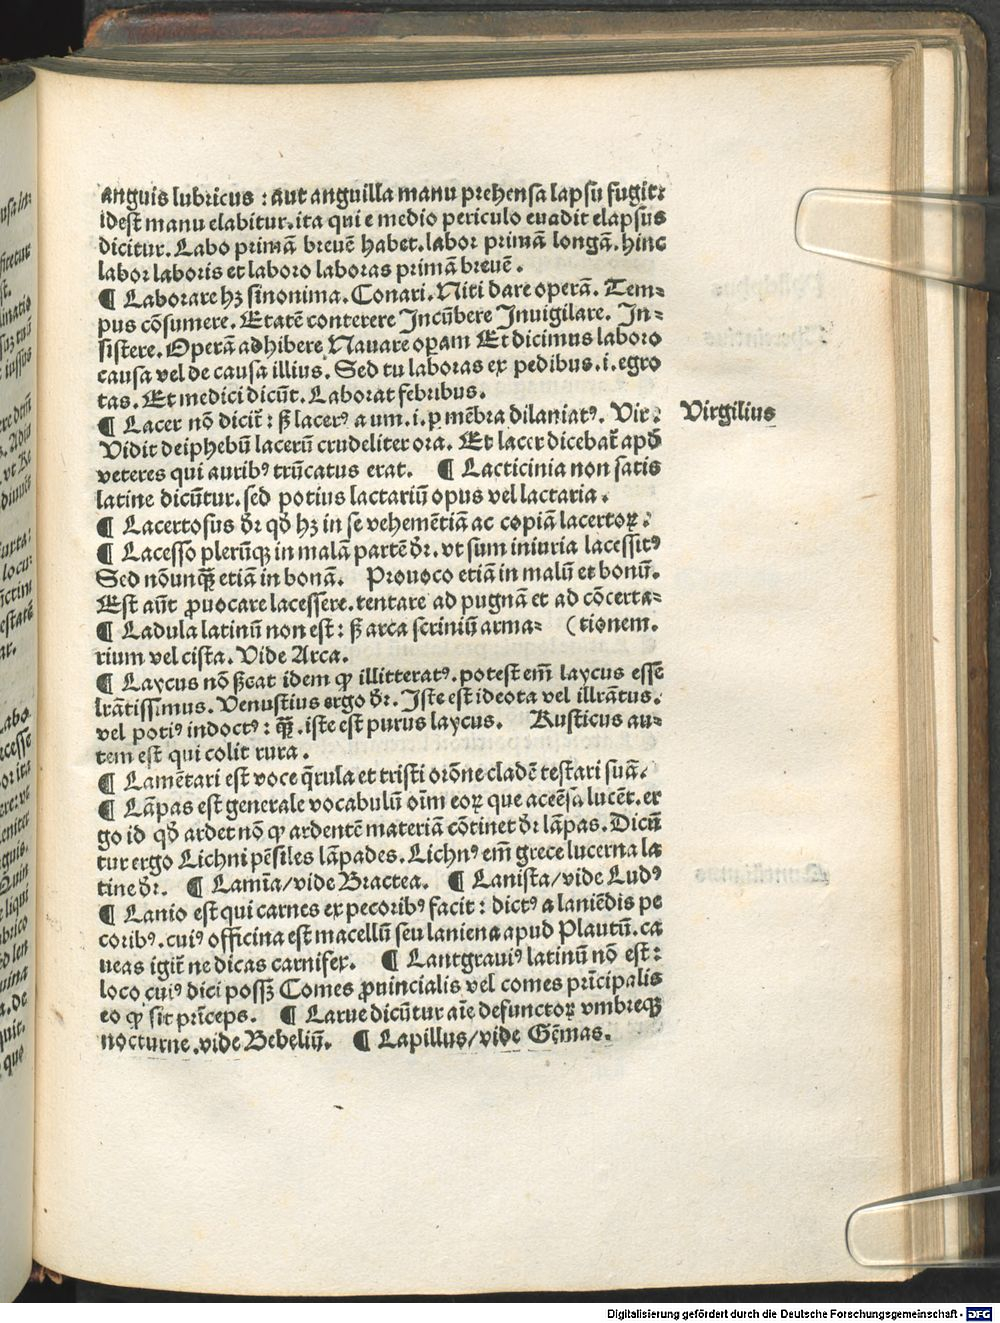 anguis lubricus : aut anguilla manu prehensa lapsu fugit:
idest manu elabitur. ita qui e medio periculo euadit elapsus
dicitur. Labo primā breuē habet. labor primā longā. hinc
labor laboris et laboro laboras primā breuē.
¶ Laborare hꝫ sinonima. Conari. Niti dare operā. Tem-
pus cōsumere. Etatē conterere Incūbere Inuigilare. In-
sistere. Operā adhibere Nauare oꝑam Et dicimus laboro
causa vel de causa illius. Sed tu laboras ex pedibus. i. egro
tas. Et medici dicūt. Laborat febribus.
¶ Lacer nō dicit̄ : ſꝫ lacerꝰ a um. i. ꝑ mēbra dilaniatꝰ. Vir:
Virgilius
Vidit deiphebū lacerū crudeliter ora. Et lacer dicebat̄ apd̄
veteres qui auribꝰ trūcatus erat. ¶ Lacticinia non satis
latine dicūtur. sed potius lactariū opus vel lactaria.
¶ Lacertosus d̄r qd̄ hꝫ in se vehemētiā ac copiā lacertoꝝ.
¶ Lacesso plerūqꝫ in malā partē d̄r. vt sum iniuria lacessitꝰ
Sed nōunqꝫ̄ etiā in bonā. Prouoco etiā in malū et bonū.
Est aūt ꝓuocare lacessere. tentare ad pugnā et ad cōcerta-
¶ Ladula latinū non est : ſꝫ arca scriniū arma- (tionem.
rium vel cista. Vide Arca.
¶ Laycus nō ſꝫcat idem ꝙ illitteratꝰ. potest em̄ laycus esse
lrātissimus. Venustius ergo d̄r. Iste est ideota vel illrātus.
vel potiꝰ indoctꝰ : qꝫ̄. iste est purus laycus. Rusticus au-
tem est qui colit rura.
¶ Lamētari est voce q̄rula et tristi orōne cladē testari suā.
¶ Lāpas est generale vocabulū oīm eoꝝ que acēsa lucēt. er
go id qd̄ ardet nō ꝙ ardentē materiā cōtinet d̄r lāpas. Dicū
tur ergo Lichni pēsiles lāpades. Lichnꝰ em̄ grece lucerna la
tine d̄r. ¶ Lamīa/vide Bractea. ¶ Lanista/vide Ludꝰ
¶ Lanio est qui carnes ex pecoribꝰ facit : dictꝰ a laniēdis pe
coribꝰ. cuiꝰ officina est macellū seu laniena apud Plautū. ca
ueas igit̄ ne dicas carnifex. ¶ Lantgrauiꝰ latinū nō est :
loco cuiꝰ dici possꝫ Comes ꝓuincialis vel comes prīcipalis
eo ꝙ sit prīceps. ¶ Larue dicūtur aīe defunctoꝝ vmbreqꝫ
nocturne. vide Bebeliū. ¶ Lapillus/vide Gēmas.
Digitalisierung gefördert durch die Deutsche Forschungsgemeinschaft - DFG